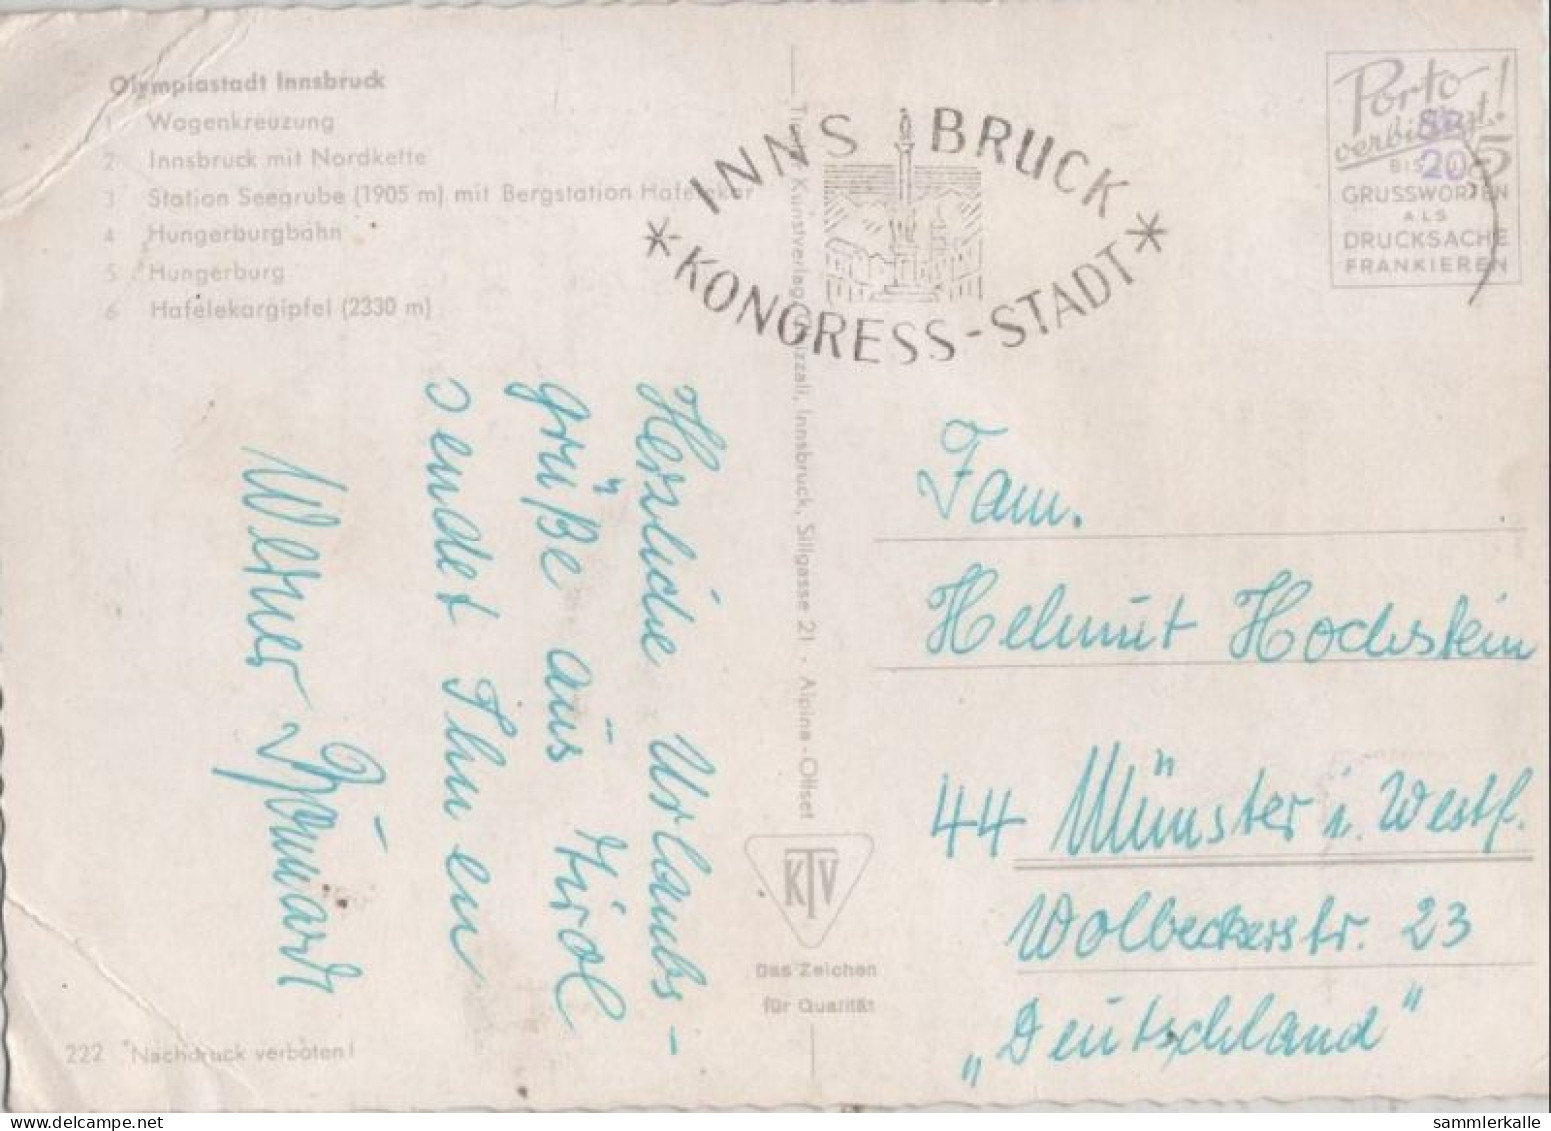 Olympiastadt Innsbruck
1 Wagenkreuzung
2 Innsbruck mit Nordkette
3 Station Seegrube (1905 m) mit Bergstation Hafelekar
4 Hungerburgbahn
5 Hungerburg
6 Hafelekargipfel (2330 m)
INNSBRUCK
* KONGRESS-STADT *
Porto
verbilligt!
BIS 5
GRUSSWORTEN
ALS
DRUCKSACHE
FRANKIEREN
Herzliche Urlaubs-
grüße aus Tirol
sendet Ihnen
Werner
Tiroler Kunstverlag Chizzali, Innsbruck, Sillgasse 21 - Alpina-Offset
KTV
Das Zeichen
für Qualität
Fam.
Helmut Hochstein
44 Münster i. Westf.
Wolbeckerstr. 23
„Deutschland"
222 Nachdruck verboten!
sammlerkalle